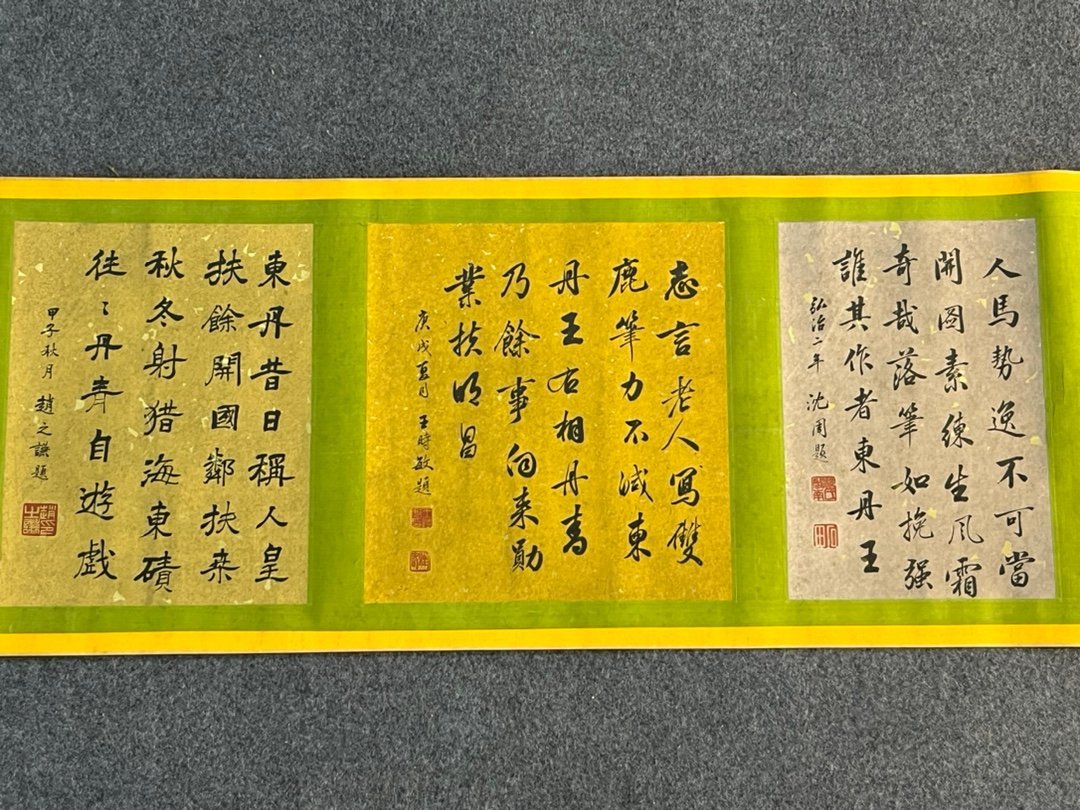 人馬勢逸不可當
開圖素練生風霜
奇哉落筆如挽强
誰其作者東丹王
弘治二年 沈周題
志言老人寫雙
鹿筆力不減東
丹王右相丹青
乃餘事向来勛
業扶明昌
庚戌夏月 王時敏題
東丹昔日稱人皇
扶餘開國鄰扶桒
秋冬射猎海東磧
往〻丹青自遊戲
甲子秋月 趙之謙題